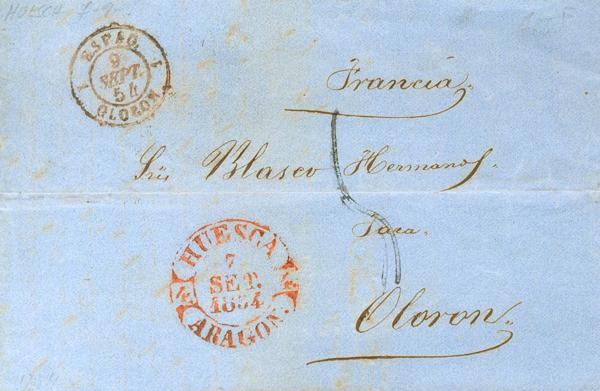 HUESCA 7-9-
1 ESPAG. 4
9
SEPT.
54
OLORON
Francia
Sres Blasco Hermanos.
Jaca.
5
Oloron
HUESCA
7
SET.
1854
ARAGON.